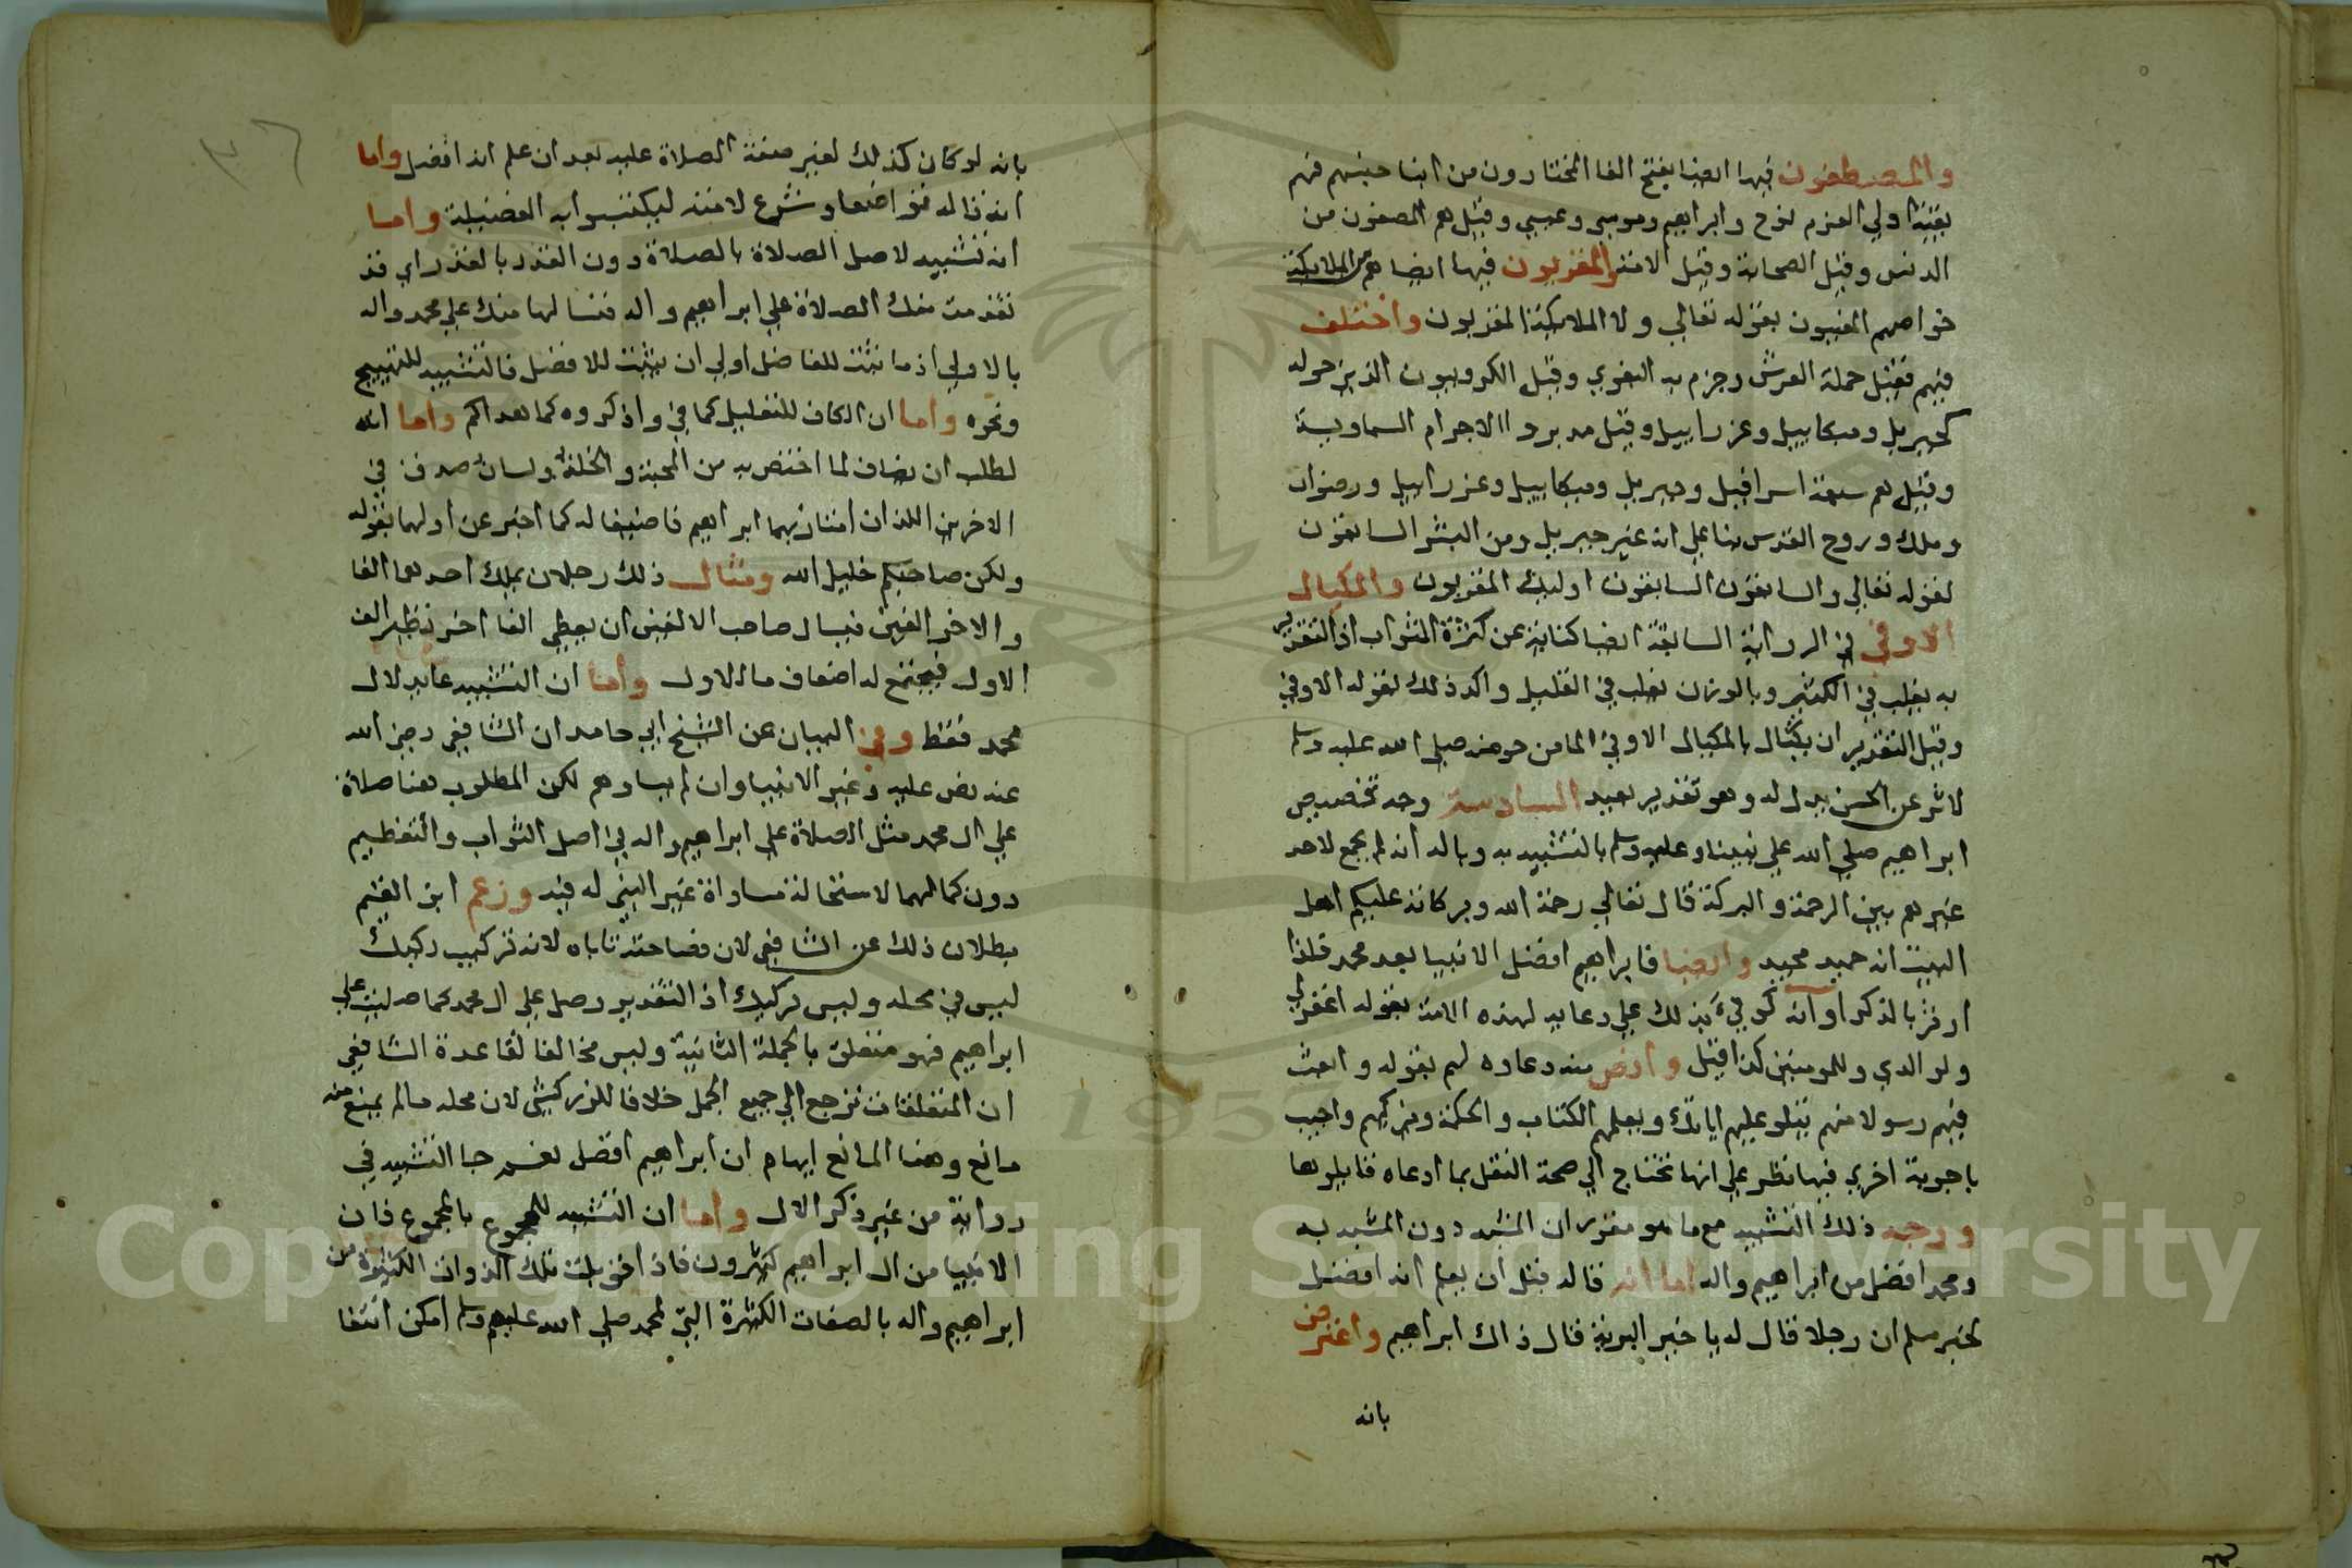 والمصطفون فيها ايضا بفتح الفا المختارون من ابنا جنسهم فهم
بقية اولي العزم نوح وابراهيم وموسي وعيسي وقيل هم المصفون من
الدنس وقيل الصحابة وقيل الامة والمقربون فيها ايضا هم من الملايكة
خواصهم المعنيون بقوله تعالي ولا الملايكة المقربون واختلف
فيهم فقيل حملة العرش وجزم به البغوي وقيل الكروبيون الذين حوله
كجبريل وميكاييل وعزراييل وقيل مدبروا الاجرام السماوية
وقيل هم سبعة اسرافيل وجبريل وميكاييل وعزراييل ورضوان
وملك وروح القدس بنا علي انه غير جبريل ومن البشر السابقون
لقوله تعالي والسابقون السابقون اوليك المقربون والمكيال
الاوفي في الرواية السابقة ايضا كناية عن كثرة الثواب اذ التقدير
به يغلب في الكثير وبالوزن يغلب في القليل واكد ذلك بقوله الاوفي
وقيل التقدير ان يكتال بالمكيال الاوفي الما من حوضه صلي الله عليه وسلم
لاثر عن الحسن يدل له وهو تقدير بعيد السادسة وجه تخصيص
ابراهيم صلي الله علي نبينا وعليه وسلم بالتشبيه به وباله انه لم يجمع لاحد
غيرهم بين الرحمة والبركة قال تعالي رحمة الله وبركاته عليكم اهل
البيت انه حميد مجيد وايضا فابراهيم افضل الانبيا بعد محمد فلذا
اوثر بالذكر او انه كوفي بذلك علي دعايه لهذه الامة بقوله اغفر لي
ولوالدي وللمومنين كذا قيل واوضح منه دعاوه لهم بقوله وابعث
فيهم رسولا منهم يتلو عليهم اياتك ويعلمهم الكتاب والحكمة ويزكيهم واجيب
باجوبة اخري فيها نظر علي انها تحتاج الي صحة النقل بما ادعاه قايلوها
ووجه ذلك التشبيه مع ما هو مقرر ان المشبه دون المشبه به
ومحمد افضل من ابراهيم واله اما انه قاله قبل ان يعلم انه افضل
لخبر مسلم ان رجلا قال له يا خير البرية قال ذاك ابراهيم واعترض
بانه
بانه لو كان كذلك لغير صفة الصلاة عليه بعد ان علم انه افضل واما
انه قاله تواضعا وشرع لامته ليكتسبوا به الفضيلة واما
انه تشبيه لاصل الصلاة بالصلاة دون القدر بالقدر اي قد
تقدمت منك الصلاة علي ابراهيم واله فنسالها منك علي محمد واله
بالاولي اذ ما ثبت للفاضل اولي ان يثبت للافضل فالتشبيه للتهييج
ونحوه واما ان الكاف للتعليل كما في واذكروه كما هداكم واما انه
لطلب ان يضاف لما اختص به من المحبة والخلة ولسان صدق في
الاخرين اللذان امتاز بهما ابراهيم فاضيفا له كما اخبر عن اولهما بقوله
ولكن صاحبكم خليل الله ومثال ذلك رجلان يملك احدهما الفا
والاخر الفين فيسال صاحب الالفين ان يعطي الفا اخر نظير الف
الاول فيجتمع له اضعاف ما للاول واما ان التشبيه عايد لال
محمد فقط وفي البيان عن الشيخ ابي حامد ان الشافعي رضي الله
عنه نص عليه وغير الانبيا وان لم يساووهم لكن المطلوب هنا صلاة
علي ال محمد مثل الصلاة علي ابراهيم واله في اصل الثواب والتعظيم
دون كمالهما لاستحالة مساواة غير النبي له فيه وزعم ابن القيم
بطلان ذلك عن الشافعي لان فصاحته تاباه لانه تركيب ركيك
ليس في محله وليس بركيك اذ التقدير وصل علي ال محمد كما صليت علي
ابراهيم فهو متعلق بالجملة الثانية وليس مخالفا لقاعدة الشافعي
ان المتعلقات ترجع الي جميع الجمل خلافا للزركشي لان محله ما لم يمنع منه
مانع وهنا المانع ايهام ان ابراهيم افضل نعم جا التشبيه في
رواية من غير ذكر الال واما ان التشبيه للمجموع بالمجموع فان
الانبيا من ال ابراهيم كثيرون فاذا قوبلت تلك الذوات الكثيرة من
ابراهيم واله بالصفات الكثيرة التي لمحمد صلي الله عليهم وسلم امكن انتفا
Copyright © King Saud University
1957